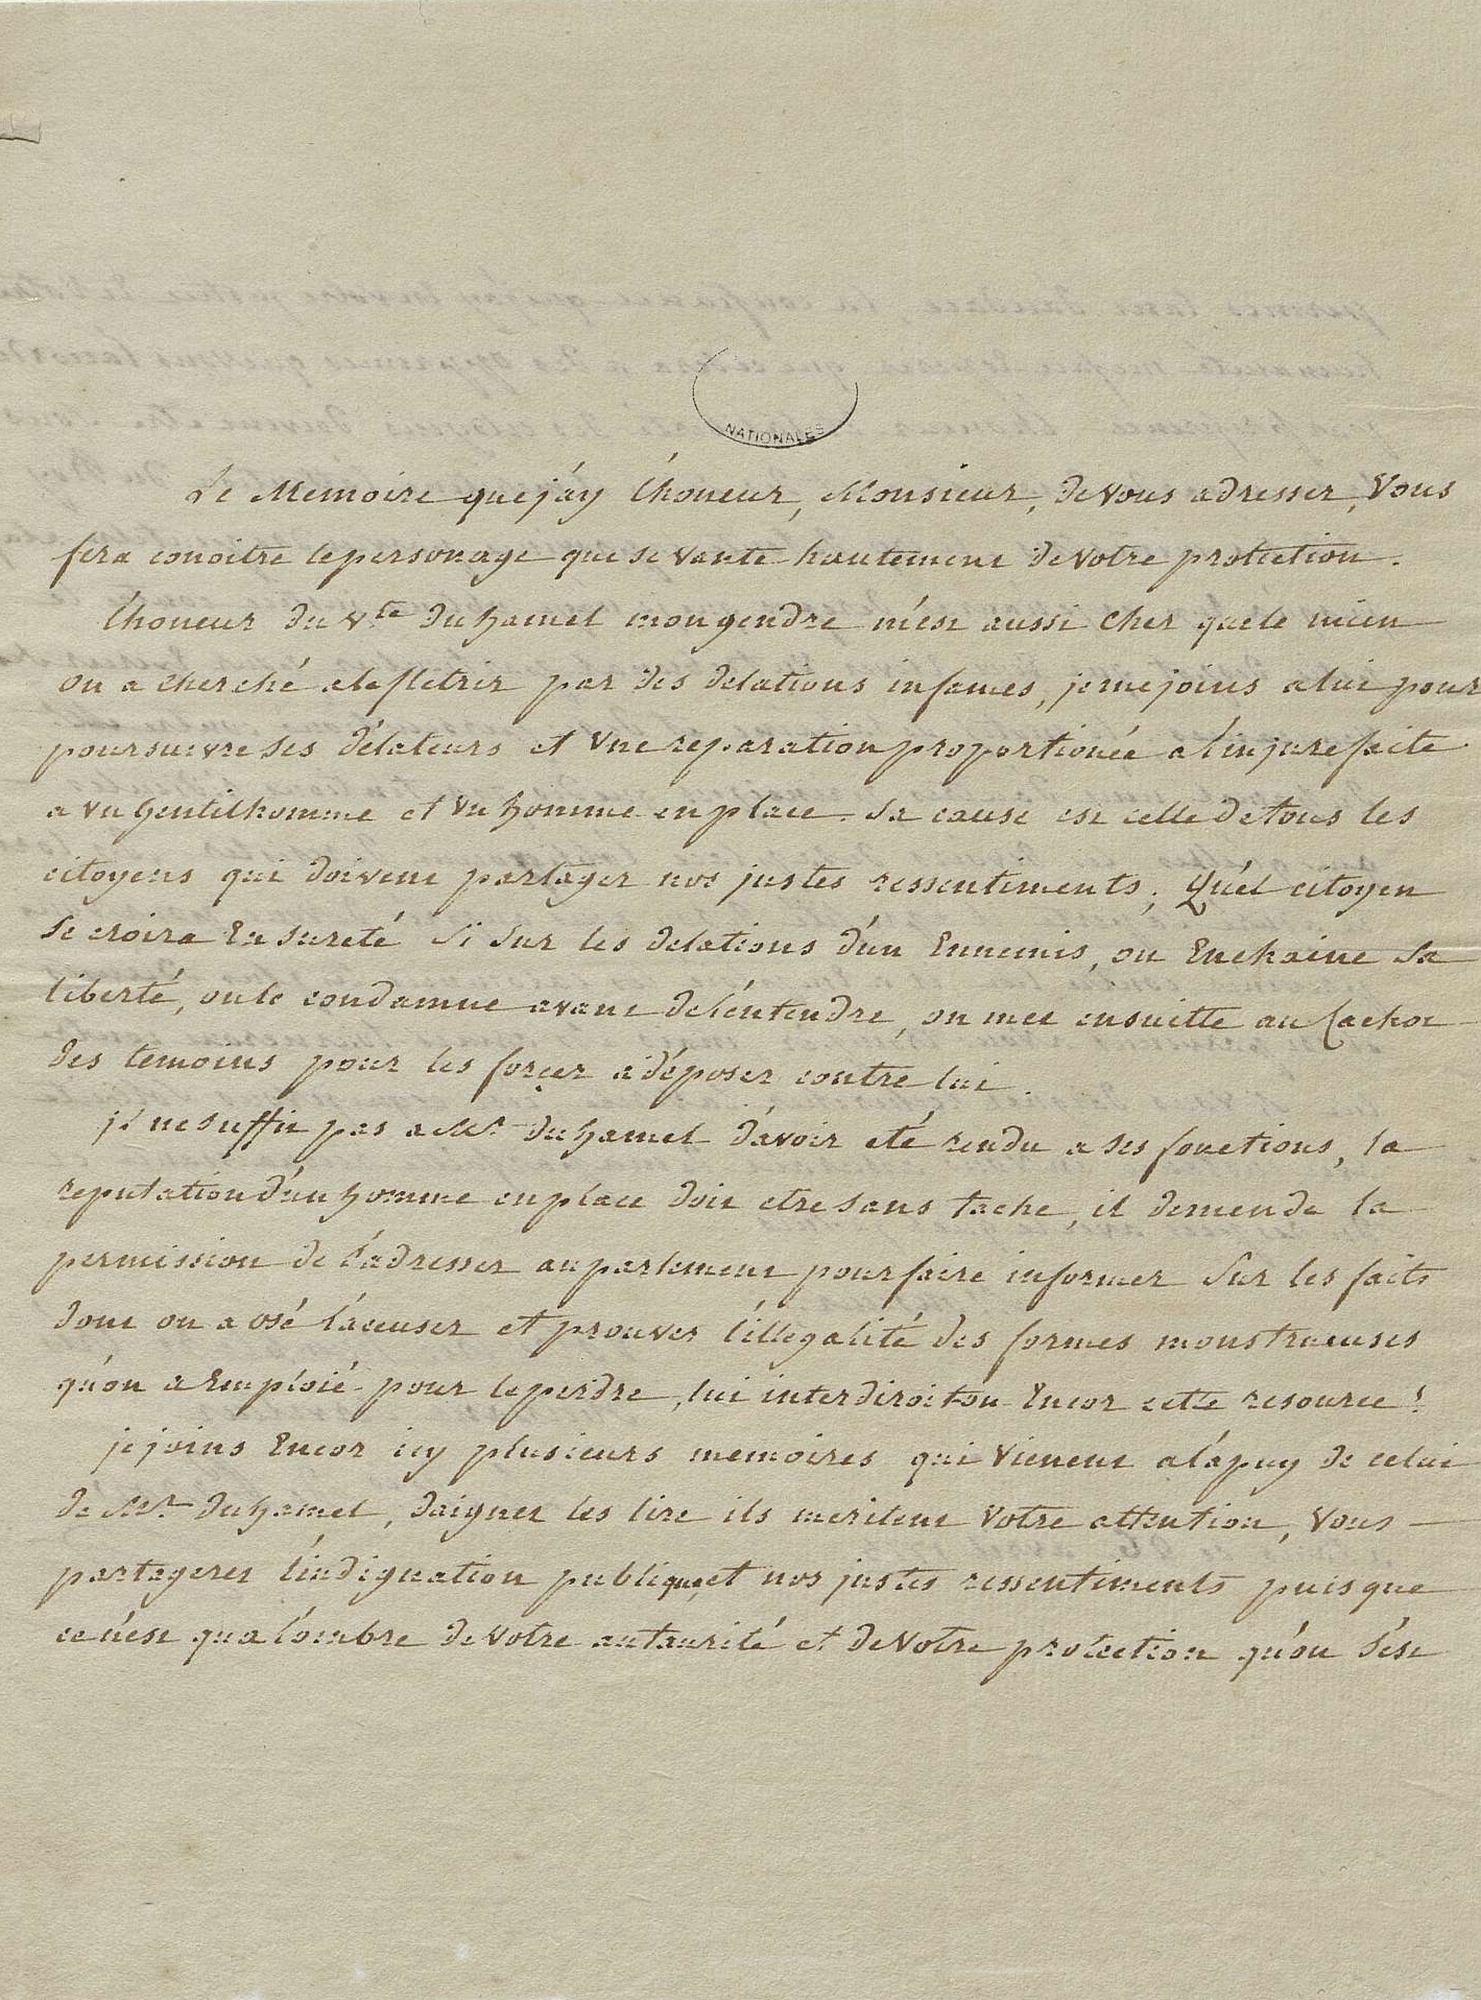 NATIONALES
Le Memoire que j'ay l'honeur, Monsieur, de vous adresser, vous
fera conoitre le personage que se vante hautement de votre protection.
l'honeur du Vte Duhamel mon gendre m'est aussi cher que le mien
on a cherché a le fletrir par des delations infames, je me joins a lui pour
poursuivre ses délateurs et une reparation proportionée a l'injure faite
a un gentilhomme et un homme en place. Sa cause est celle de tous les
citoyens qui doivent partager nos justes ressentiments; Quel citoyen
se croira en sureté si sur les delations d'un Ennemis, on Enchaine sa
liberté, on le condamne avant de l'entendre, on met ensuitte au Cachot
des temoins pour les forçer a déposer contre lui.
il ne suffit pas a Mr. Duhamel d'avoir eté rendu a ses fonctions, la
reputation d'un homme en place doit etre sans tache, il demende la
permission de s'adresser au parlement pour faire informer sur les faits
dont on a osé l'accuser et prouver l'illegalité des formes monstrueuses
qu'on a Emploié pour le perdre, lui interdiroit-on Encor cette resource!
je joins Encor icy plusieurs memoires qui vienent a l'apuy de celui
de Mr. Duhamel, daignez les lire ils meritent votre attention, vous
partagerez l'indignation publique, et nos justes ressentiments puisque
ce n'est qu'a l'ombre de votre autaurité et de votre protection qu'on s'est